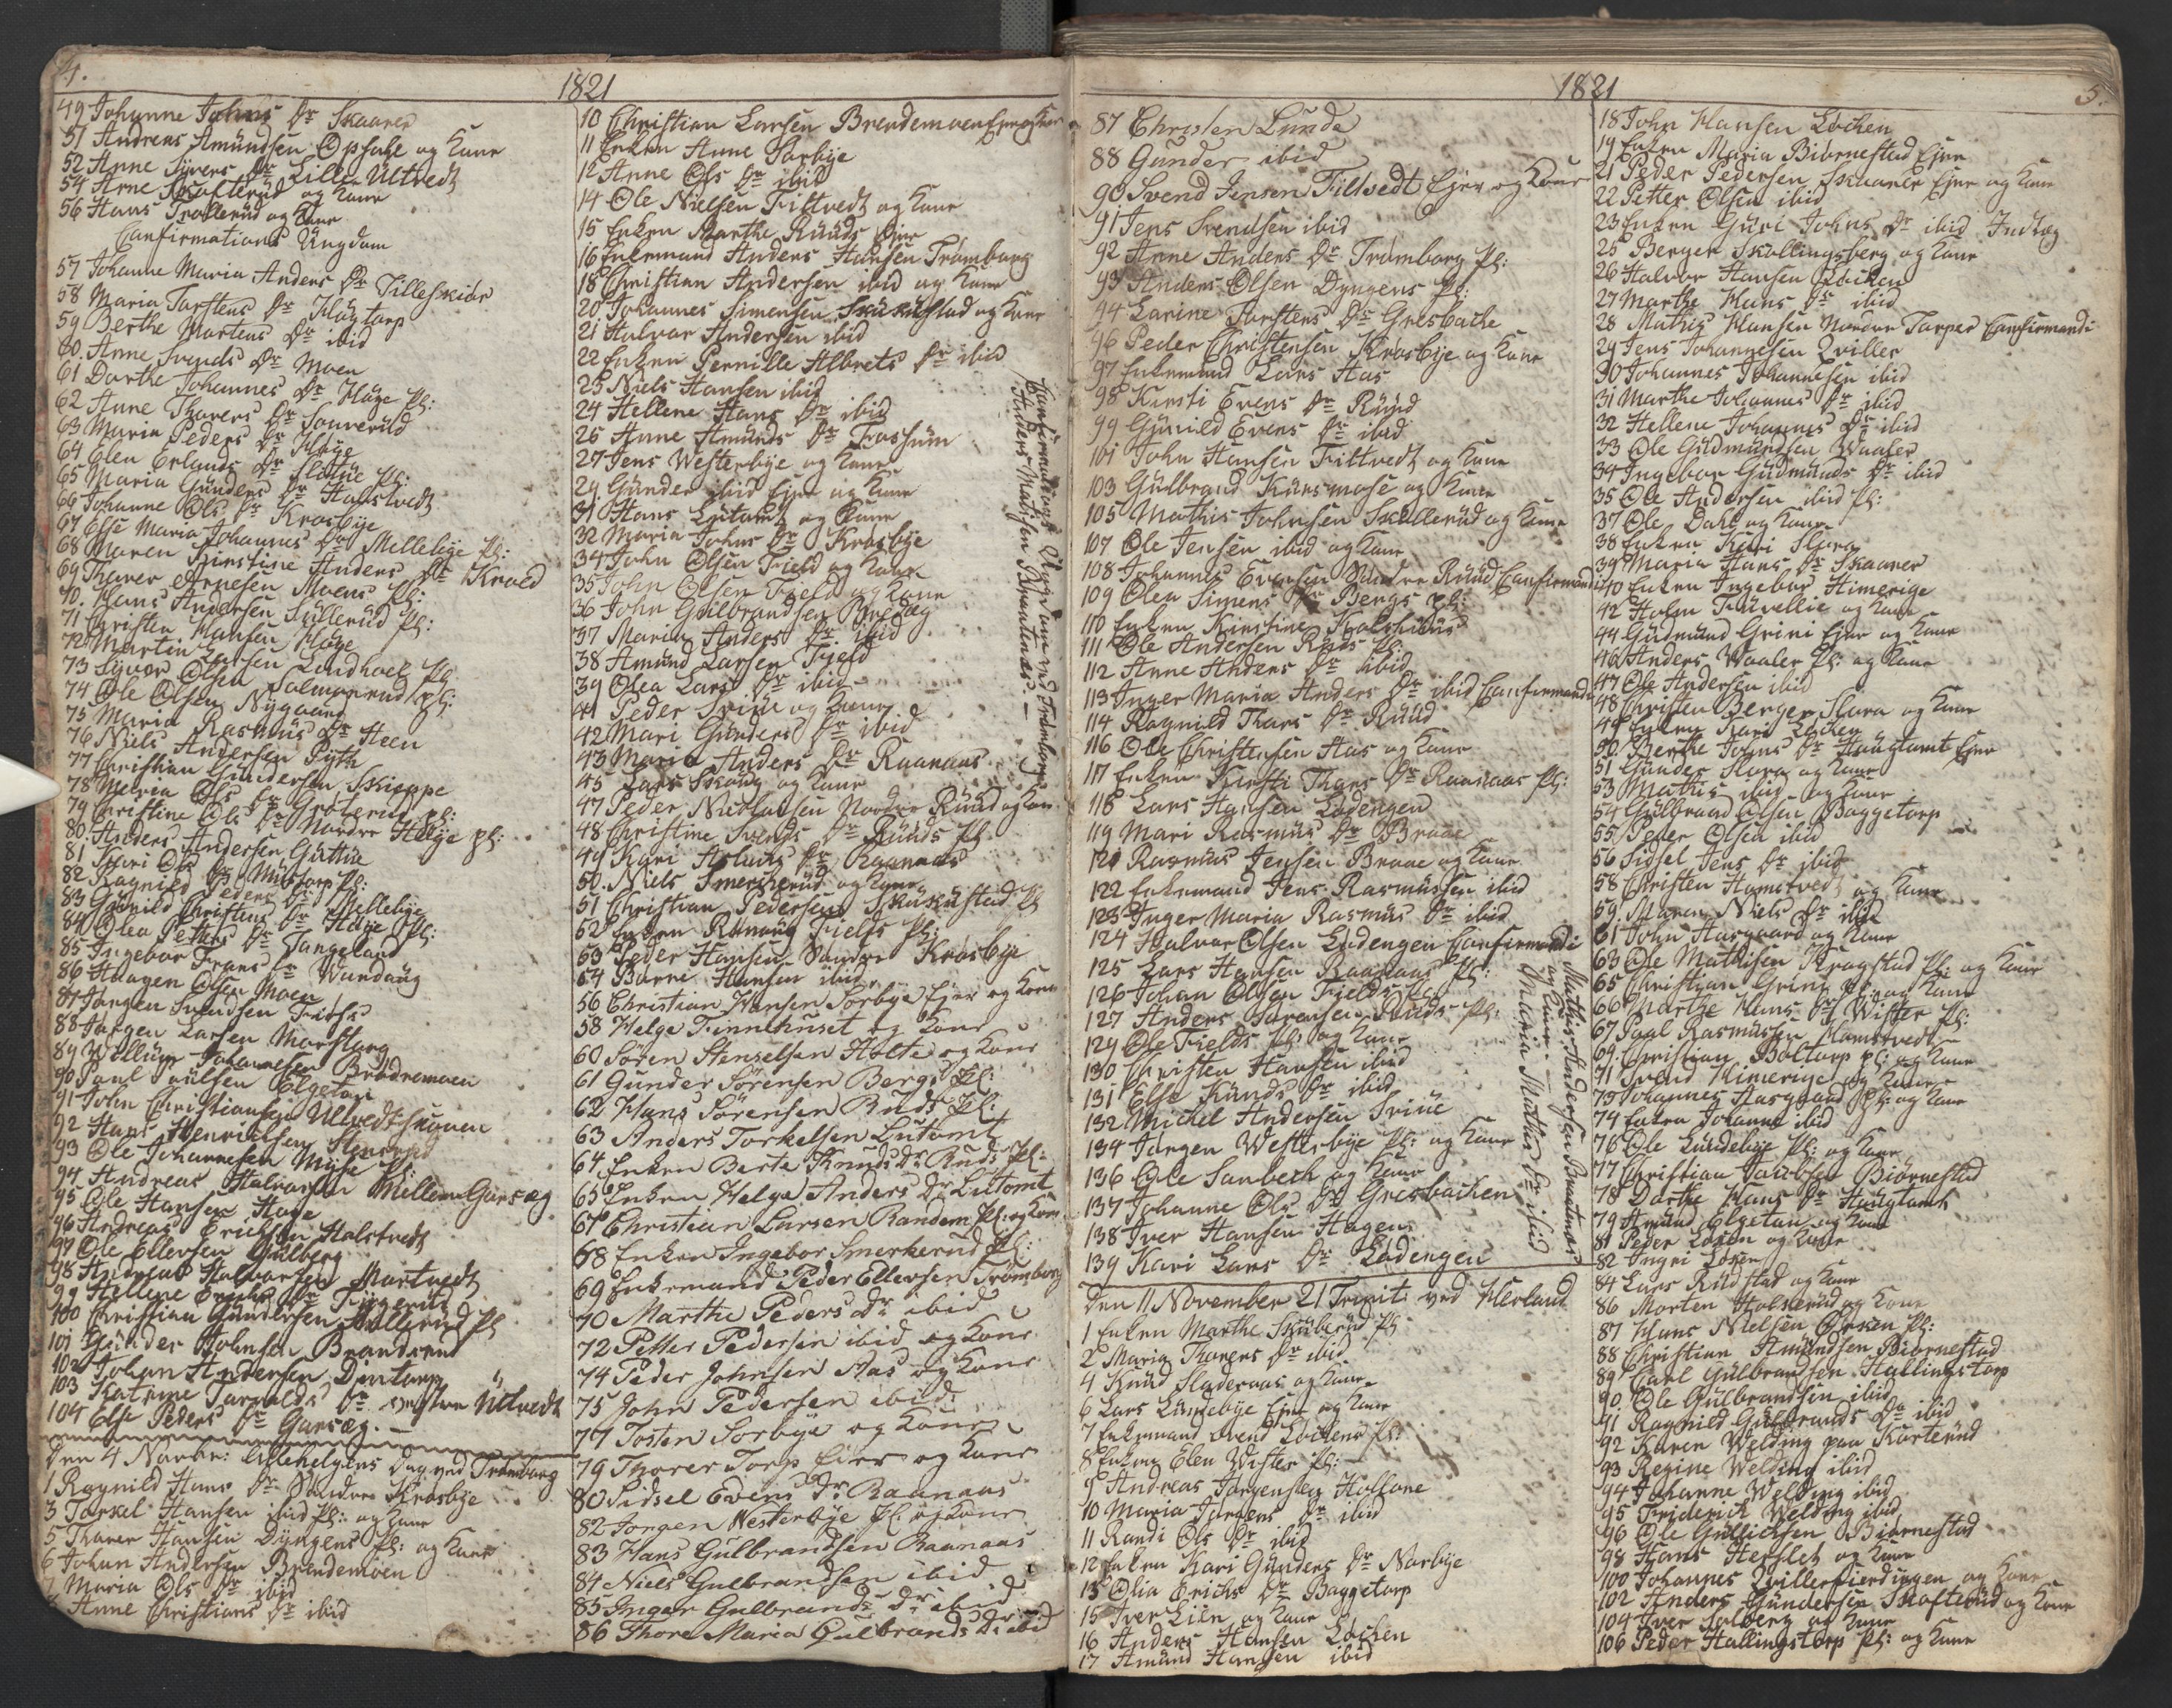 4.
1821
49 Johanne Johns Dr Skaarer
51 Andreas Amündsen Opsahl og Kone
52 Anne Syvers Dr Lille Ultvedt
54 Arne Skofterüd og Kone
56 Hans Trollerüd og Kone
Confirmations Ungdom
57 Johanne Maria Anders Dr Tilleskiør
58 Maria Torstens Dr Haugtorp
59 Berthe Martens Dr ibid
60. Anne Svends Dr Moen
61 Dorthe Johannes Dr Häge Pl:
62 Anne Thorers Dr
63 Maria Peders Dr Häye
64 Elen Erlands Dr Slatüe Pl:
65 Maria Günders Dr Hamstvedt
66 Johanne Ols Dr Krosbye
67 Else Maria Johannes Dr Mellebye Pl:
68 Maren Kirstine Anders Dr Kroed
69 Thorer Arnesen Moens Pl:
70. Hans Andersen Süllerüd Pl:
71 Christen Hansen Häge
72 Martin Larsen Lindhoel Pl:
73 Syver Olsen Salmonrud Pl:
74 Ole Olsen Nygaard
75 Maria Rasmüs Dr Heen
76 Niels Andersen Pyth
77 Christian Gündersen Skieppe
78 Maren Ols Dr Groterüd Pl:
79 Christine Ols Dr Nordre Helye Pl:
80. Anders Andersen Güttüe
81 Kari Ols Dr Müstorp Pl:
82 Ragnild Peders Dr Mellebye
83 Gunild Christens Dr Helye Pl:
84 Olea Petters Dr Tangeland
85 Ingebor Frans Dr Wandaüg
86 Haagen Olsen Moen
87 Jørgen Svendsen Fosss
88 Jørgen Larsen Morstang
89 Willum Johannesen Brødremoen
90 Poul Poülsen Elgetun
91 John Christiansen Ultvedtskoven
92 Hans Henriksen Stensrud
93 Ole Johannesen Myhre Pl:
94 Andreas Halvorsen Millem Garsæg
95 Ole Hansen Hage
96 Andreas Erichsen Halstvedt
97 Ole Ellevsen Gülberg
98 Andreas Halvorsen Martvedt
99 Hellene Erichs Dr Tiügerüd
100 Christian Gundersen Süllerüd Pl
101 Günder Johnsen Brandsrud
102 Johan Andersen Dintorp
103 Katrine Torvolds Dr vestre Ültvedt
104 Else Peders Dr Garsæg.
Den 4 Novbr: Allehelgens Dag ved Trømborg
1 Ragnild Hans Dr Søndre Krosbye
3 Torkel Hansen ibid Pl: og Kone
5 Thorer Hansen Dyngens Pl: og Kone
6 Johan Andersen Brendemoen
7 Maria Ols Dr ibid
8 Anne Christians Dr ibid
10 Christian Larsen Brendemoen Ejer og Kone
11 Enken Anne Sorbye
12 Anne Ols Dr ibid
14 Ole Nielsen Filtvedt og Kone
15 Enken Marthe Rüüds Ejer
16 Enkemand Anders Hansen Trømborg
18 Christian Andersen ibid og Kone
20 Johannes Simensen Skükülstad og Kone
21 Halvor Andersen ibid
22 Enken Pernille Albrets Dr ibid
23 Niels Hansen ibid
24 Hellene Hans Dr ibid
25 Anne Amünds Dr Fossum
27 Jens Westerbye og Kone
29. Günder ibid Ejer og Kone
31 Hans Lütomt og Kone
32 Maria Johns Dr Krosbye
34 John Olsen Field og Kone
35 John Olsen Field og Kone
36 John Gülbrandsen Bredeg
37 Maria Anders Dr ibid
38 Amund Larsen Field
39 Olea Lars Dr ibid
41 Peder Sviüe og Kone
42 Mari Günders Dr ibid
43 Maria Anders Dr Raanaas
45 Lars Skaüg og Kone
47 Peder Nicolausen Nordre Rüüd og Kone
48 Christine Svends Dr Rüüds Pl
49 Kari Aslaks Dr Raanaas
50. Niels Smerkerüd og Kone
51 Christian Pedersen Skükülstad Pl
52 Enken Randüg Fields Pl:
53 Peder Hansen Søndre Krosbye
54 Børre Hansen ibid
56 Christian Hansen Sorbye Ejer og Kone
58 Helge Finnehuset og Kone
60 Søren Stenselsen Holte og Kone
61 Gunder Sørensen Bergs Pl:
62 Hans Sørensen Ruds Pl:
63 Anders Torkelsen Lutomt
64 Enken Berte Knuds Dr Ruds Pl:
65 Enken Helge Anders Dr Lutomt
67 Christian Larsen Randem Pl: og Kone
68 Enken Ingebor Smerkerud Pl:
69 Enkemand Peder Ellevsen Trömborg
70 Marthe Peders Dr ibid
72 Petter Pedersen ibid og Kone
74 Peder Johnsen Aas og Kone
75 John Pedersen ibid
77 Tosten Sorbye og Kone
79 Thorer Torp Eier og Kone
80 Sidsel Evens Dr Raanaas
82 Jorgen Westerbye Pl: og Kone
83 Hans Gülbrandsen Raanaas
84 Niels Gulbrandsen ibid
85 Inger Gulbrands Dr ibid
86 Thore Maria Gulbrands Dr ibid
Confirmations Ungdom ved Trömborg
Anders Matisen Braatenæs
1821
5.
87 Christen Lunde
88 Günder ibid
90 Svend Jensen Filtvedt Ejer og Kone
91 Jens Svendsen ibid
92 Anne Anders Dr Trømborg Pl:
93 Anders Olsen Dyngens Pl:
94 Larine Torstens Dr Gresbache
96 Peder Christensen Krosbye og Kone
97 Enkemand Lars Aas
98 Kirsti Evens Dr Rüüd
99 Günild Evens Dr ibid
101 John Hansen Filtvedt og Kone
103 Gülbrand Kürsmose og Kone
105 Mathis Johnsen Sküllerüd og Kone
107 Ole Jensen ibid og Kone
108 Johannes Evensen Søndre Rüüd Confirmandi
109 Olea Simens Dr Bergs Pl:
110 Enken Kirstine
111 Ole Andersen Rüds Pl:
112 Anne Anders Dr ibid
113 Inger Maria Anders Dr ibid Confirmandi
114 Ragnild Thors Dr Rüüd
116 Ole Christensen Aas og Kone
117 Enken Kirsti Thors Dr Raanaas Pl:
118 Lars Hansen Lödengen
119 Mari Rasmüs Dr Braae
121 Rasmüs Jensen Braae og Kone
122 Enkemand Jens Rasmüssen ibid
123 Inger Maria Rasmüs Dr ibid
124 Halvor Olsen Lødengen Confirmandi
125 Lars Hansen Raanaas Pl:
126 Johan Olsen Fields Pl
127 Anders Sørensen Rüds Pl:
129 Ole Fields Pl: og Kone
130 Christen Hansen ibid
131 Else Knüds Dr ibid
132 Michel Andersen Sviüe
134 Jørgen Westerbye Pl: og Kone
136 Ole Sanbech og Kone
137 Johanne Ols Dr Gresbachen
138 Iver Hansen Hagen
139 Kari Lars Dr Lødengen
Mathis Andersen Braatenæs
og Kone
Maria Mathis Dr ibid
Den 11 November 21 Trinit: ved Herland
1 Enken Marthe Sküberüd Pl
2 Maria Thorers Dr ibid
4 Knüd Sladeraas og Kone
6 Lars Lündebye Ejer og Kone
7 Enkemand Svend Lochens Pl:
8 Enken Elen Wister Pl:
9 Andreas Jørgensen Hollane
10 Maria Jørgens Dr ibid
11 Randi Ols Dr ibid
12 Enken Kari Günders Dr Norbye
13 Olia Erichs Dr Baggetorp
15 Iver Lien og Kone
16 Anders Hansen Lochen
17 Amünd Hansen ibid
18 John Hansen Lochen
19 Enken Maria Biørnestad Ejer
21 Peder Pedersen Skaarer Ejer og Kone
22 Petter Olsen ibid
23 Enken Guri Johns Dr ibid Indlæg
25 Berger Skollingsberg og Kone
26 Halvor Hansen Lochen
27 Marthe Hans Dr ibid
28 Mathis Hansen Nordre Torper Confirmandi
29 Jens Johannesen Qviller
30 Johannes Johannesen ibid
31 Marthe Johannes Dr ibid
32 Hellene Johannes Dr ibid
33 Ole Güdmündsen Waaler
34 Ingebor Güdmünds Dr ibid
35 Ole Andersen ibid Pl:
37 Ole Dahl og Kone
38 Enken Kari Slora
39 Maria Hans Dr Skaarer
40 Enken Ingebor Himerige
42 Holm og Kone
44 Güdmünd Grini Ejer og Kone
46 Anders Waaler Pl: og Kone
47 Ole Andersen ibid
48 Christen Berger Slora og Kone
49 Enken Kari Lochen
50. Berthe Johns Dr Haügtomt Ejer
51 Günder Slora og Kone
53 Mathis ibid og Kone
54 Gülbrand Olsen Baggetorp
55 Peder Olsen ibid
56 Sidsel Jens Dr ibid
58 Christen Hamstvedt og Kone
59. Maren Niels Dr ibid
61 John Aasgaard og Kone
63 Ole Mathisen Kragstad Pl: og Kone
65 Christian Grini Pl: og Kone
66 Marthe Hans Dr Wister Pl:
67 Poul Rasmüsen Hamstvedt
69. Christian Boltorp Pl: og Kone
71 Svend Himerige og Kone
73 Johannes Aasgaard Pl: og Kone
74 Enken Johanne ibid
76 Ole Lündebye Pl: og Kone
77 Christian Jacobsen Biørnestad
78 Dorthe Hans Dr Haügtomt
79 Amünd Elgetun og Kone
81 Peder Løsen og Kone
82 Ingri Løsen
84 Lars Rüdstad og Kone
86 Morten Holsterüd og Kone
87 Hans Nielsen Ørsen Pl:
88 Christian Amündsen Biørnestad
89 Carl Gülbrandsen Hallingstorp
90. Ole Gülbrandsen ibid
91 Ragnild Gülbrands Dr ibid
92 Karen Welding paa Karterüd
93 Regine Welding ibid
94 Johanne Welding ibid
95 Friderich Welding ibid
96 Ole Güllichsen Biørnestad
98 Hans Herslet og Kone
100 Johannes Qvillerfierdingen og Kone
102 Anders Gündersen Skofterüd og Kone
104 Iver Solberg og Kone
106 Peder Hallingstorp Pl: og Kone